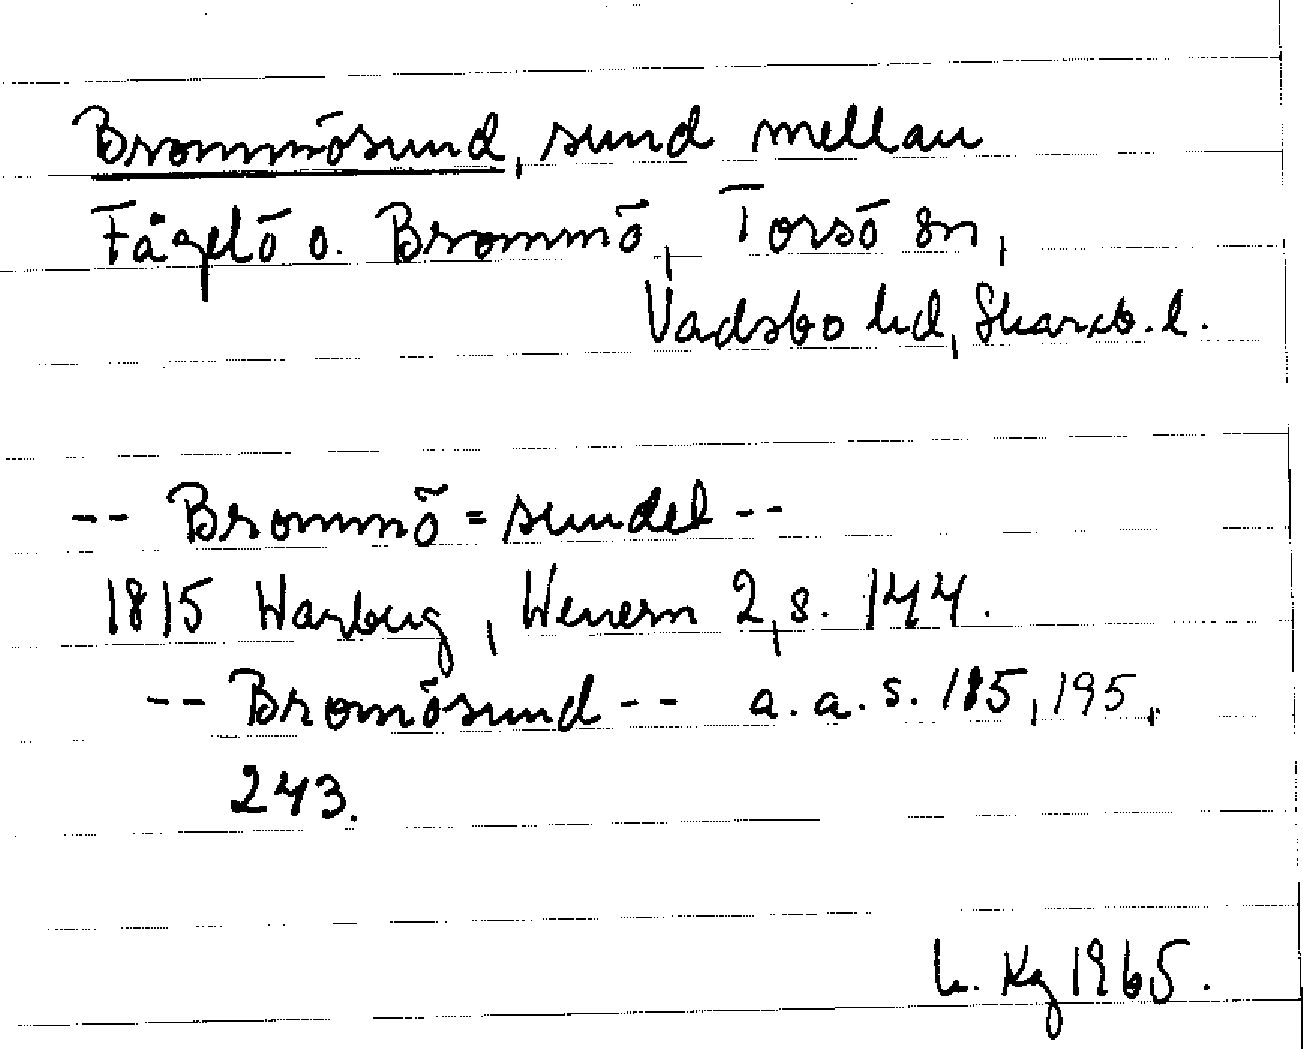 Brommösund, sund mellan
Fågelö o. Brommö, Torsö sn,
Vadsbo hd, Skarab. l.
-- Brommö=sundet --
1815 Warberg, Wenern 2, s. 144.
-- Bromösund -- a.a. s. 185, 195,
243.
L. Kg 1965.